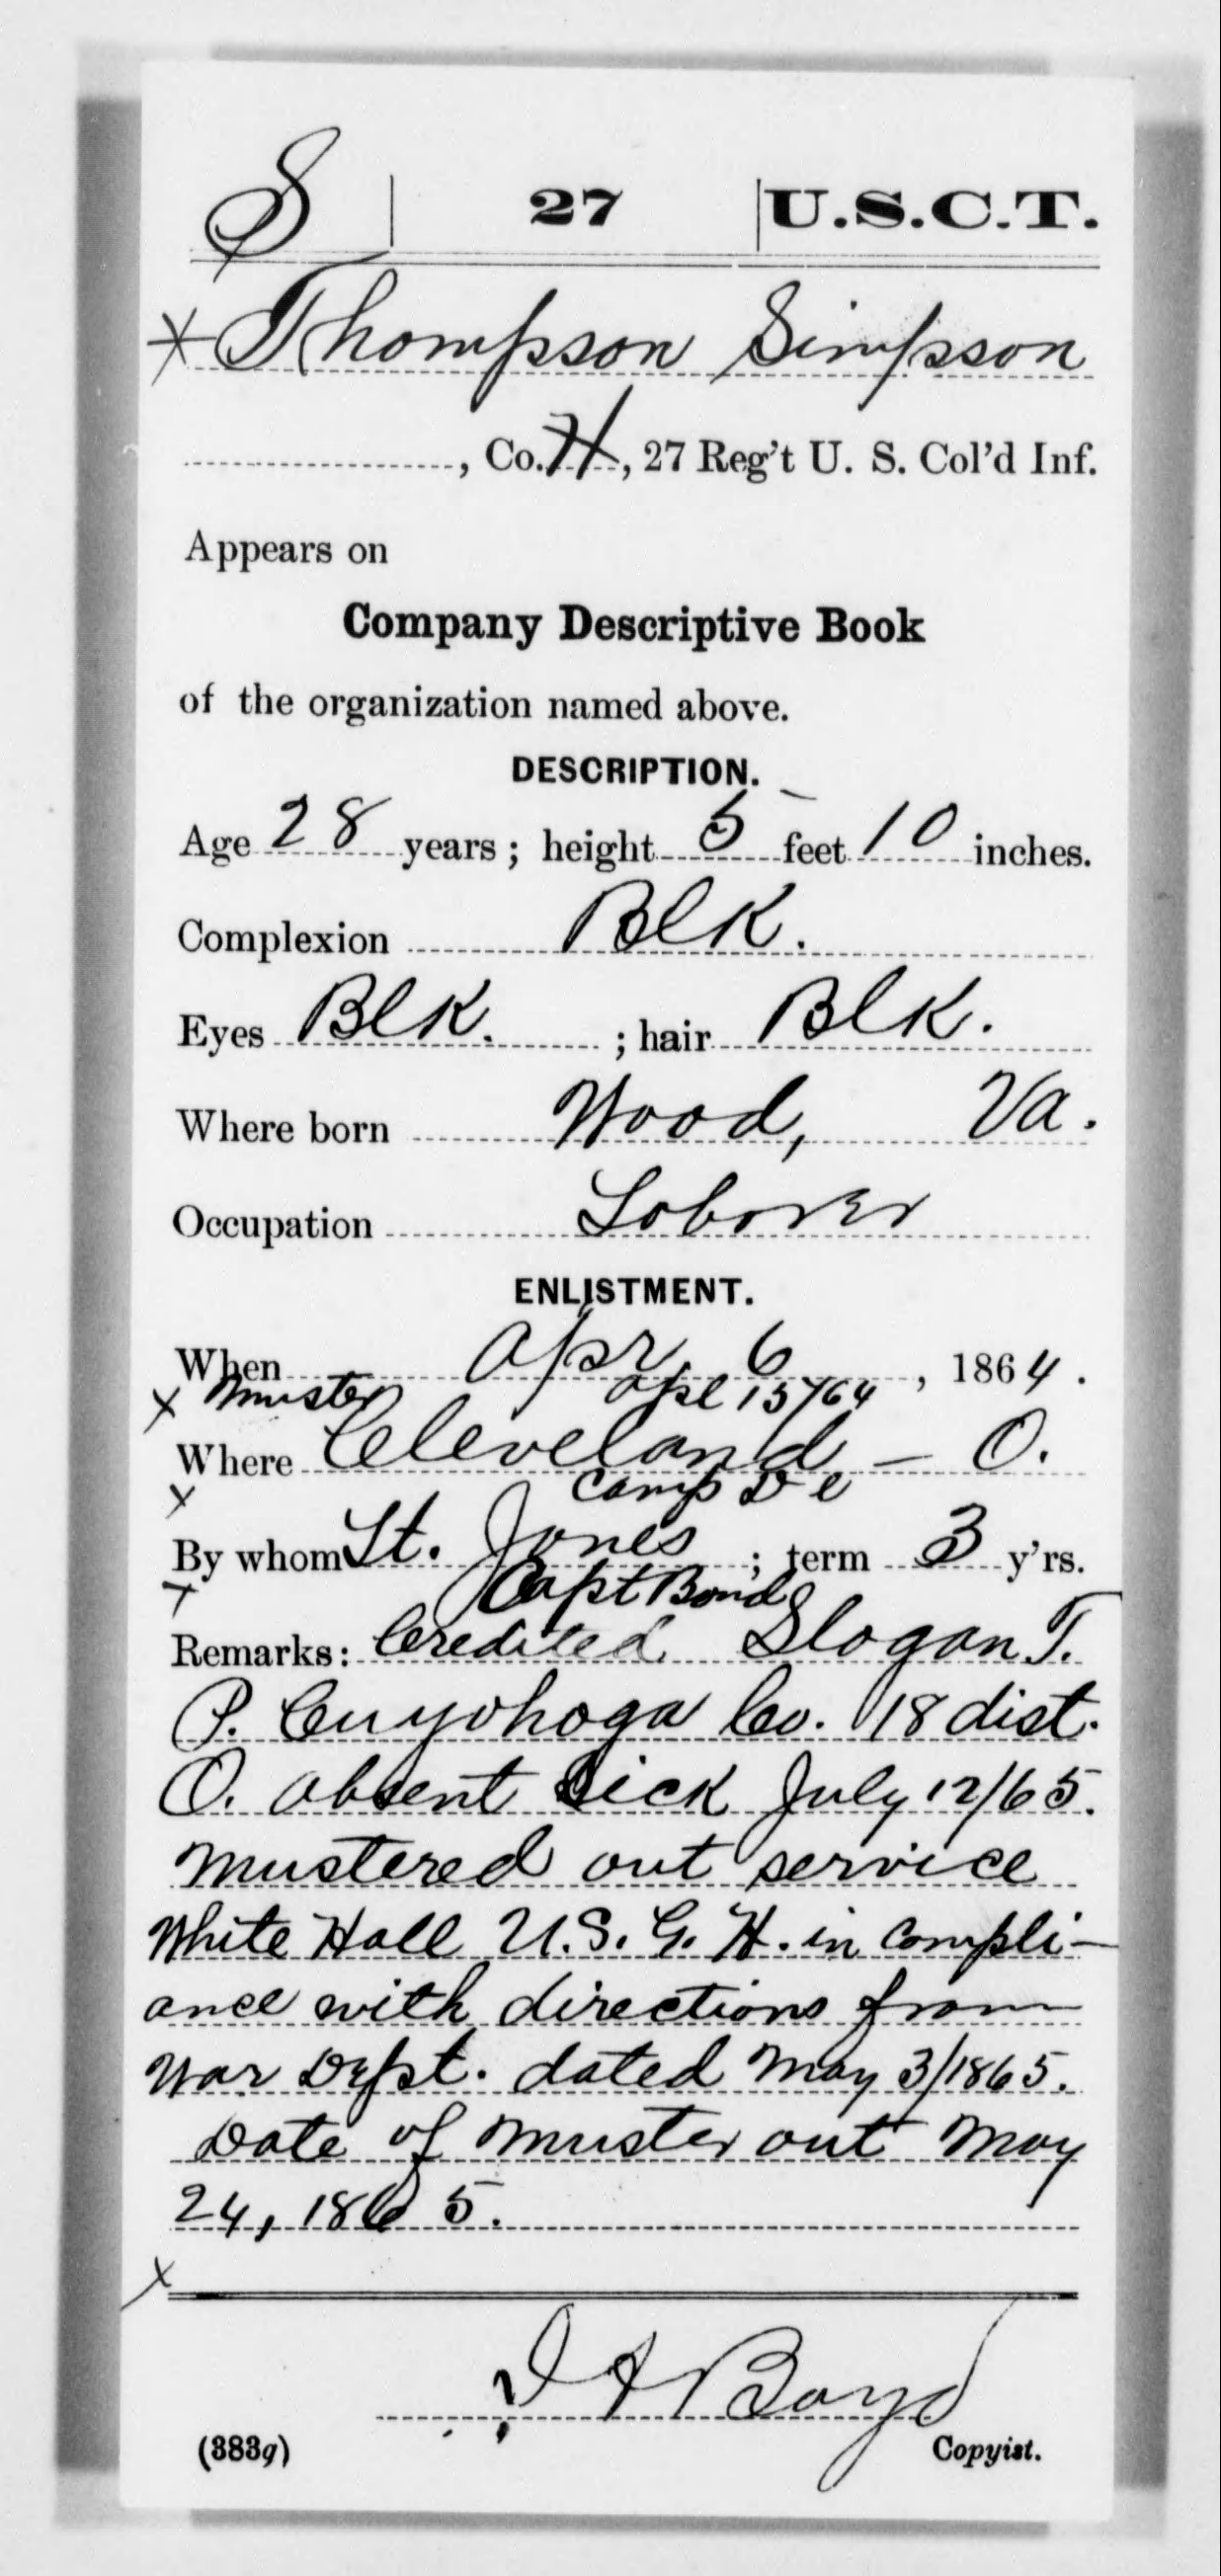 S | 27 | U.S.C.T.
x Thompson Simpson
, Co. H, 27 Reg't U. S. Col'd Inf.
Appears on
Company Descriptive Book
of the organization named above.
DESCRIPTION.
Age 28 years; height 5 feet 10 inches.
Complexion Blk.
Eyes Blk. ; hair Blk.
Where born Wood, Va.
Occupation Laborer
ENLISTMENT.
When Apr. 6, 1864.
x Muster Apl 15/64
Where Cleveland - O.
x Camp De
By whom Lt. Jones ; term 3 y'rs.
x Capt Bond
Remarks: Credited Slogan T.
P. Cuyohoga Co. 18 dist.
O. Absent Sick July 12/65.
Mustered out service
White Hall U.S. G. H. in compli-
ance with directions from
War Dept. dated May 3/1865.
Date of Muster out May
24, 1865.
x
Boyd
(383g) Copyist.